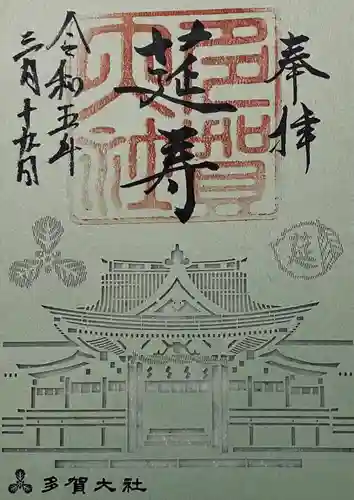 奉拝
多賀大社
莚寿
令和五年
三月十九日
莚
多賀大社